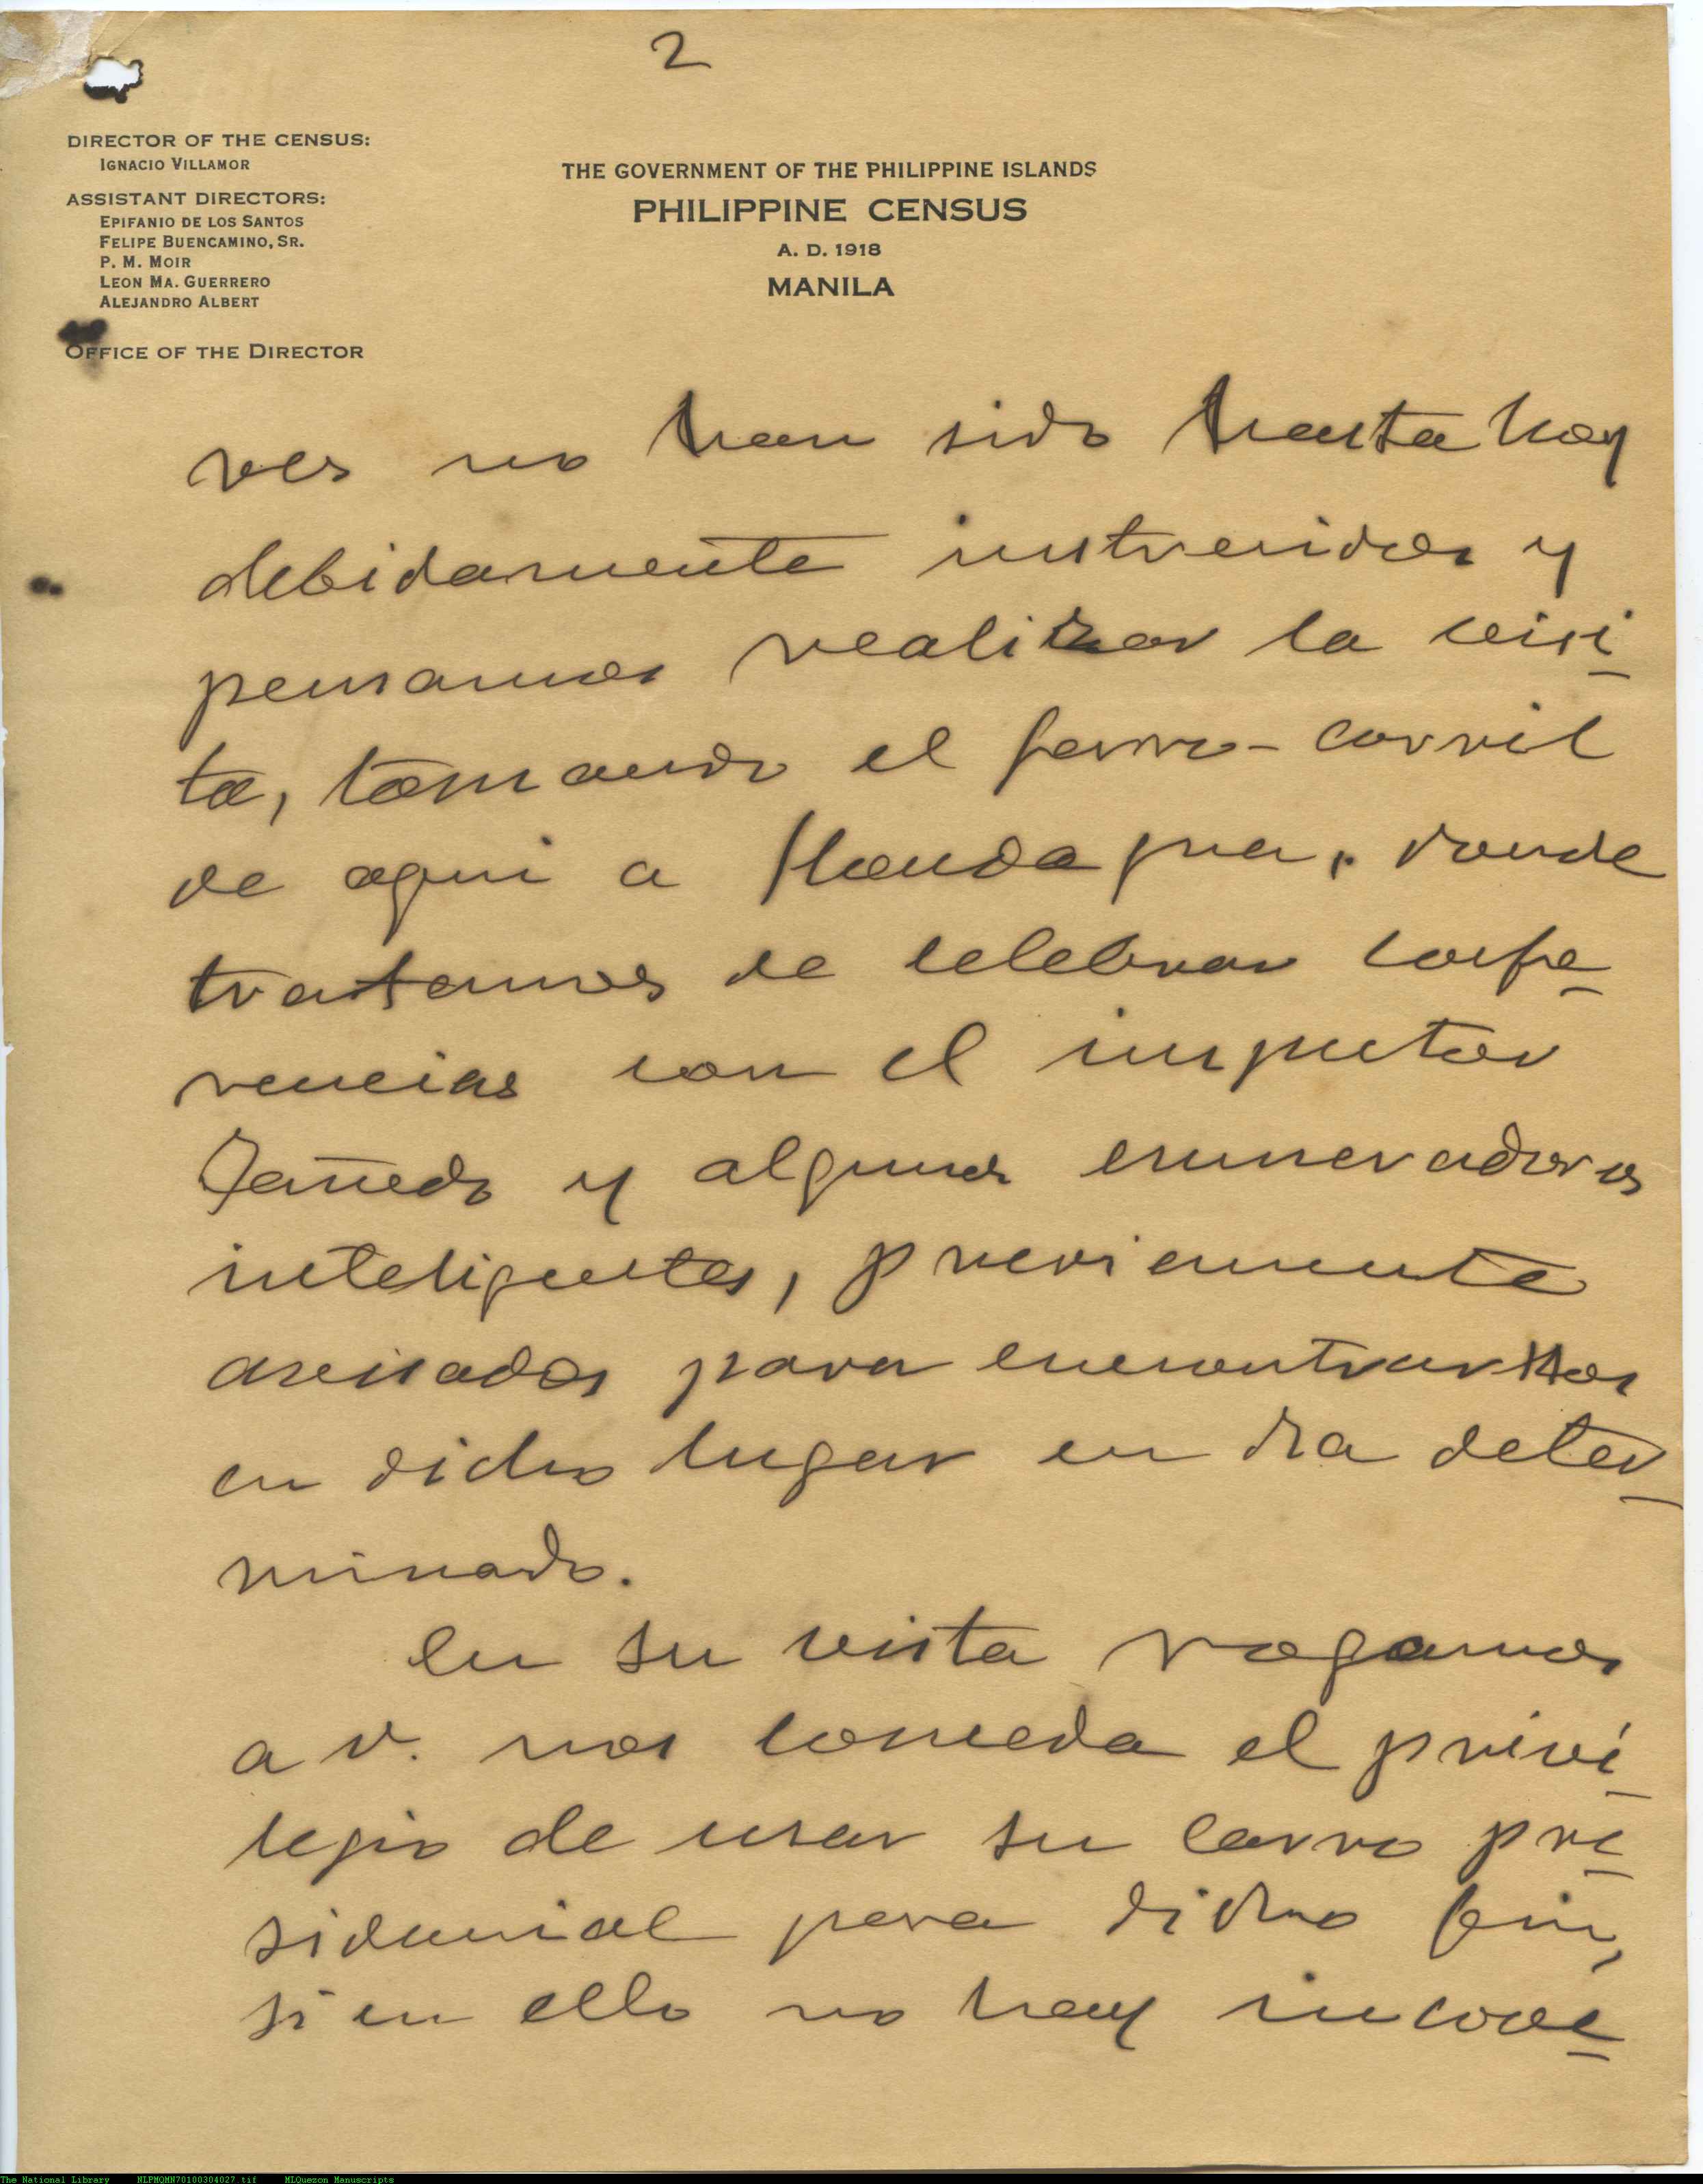 2
DIRECTOR OF THE CENSUS:
IGNACIO VILLAMOR
ASSISTANT DIRECTORS:
EPIFANIO DE LOS SANTOS
FELIPE BUENCAMINO, SR.
P. M. MOIR
LEON MA. GUERRERO
ALEJANDRO ALBERT
OFFICE OF THE DIRECTOR
THE GOVERNMENT OF THE PHILIPPINE ISLANDS
PHILIPPINE CENSUS
A. D. 1918
MANILA
res no han sido hasta hoy
debidamente instruidos y
pensamos realizar la visi-
ta, tomando el ferro-carril
de aqui a Hondagua, donde
tratamos de celebrar confe-
rencias con el inspector
y algunos enumeradores
inteligentes, previamente
avisados para encontrarnos
en dicho lugar en dia deter-
minado.
En su vista rogamos
a V. nos conceda el privi-
legio de usar su carro pre-
sidencial para dicho fin,
si en ello no hay inconve-
The National Library NLPMQMN70100304027.tif MLQuezon Manuscripts